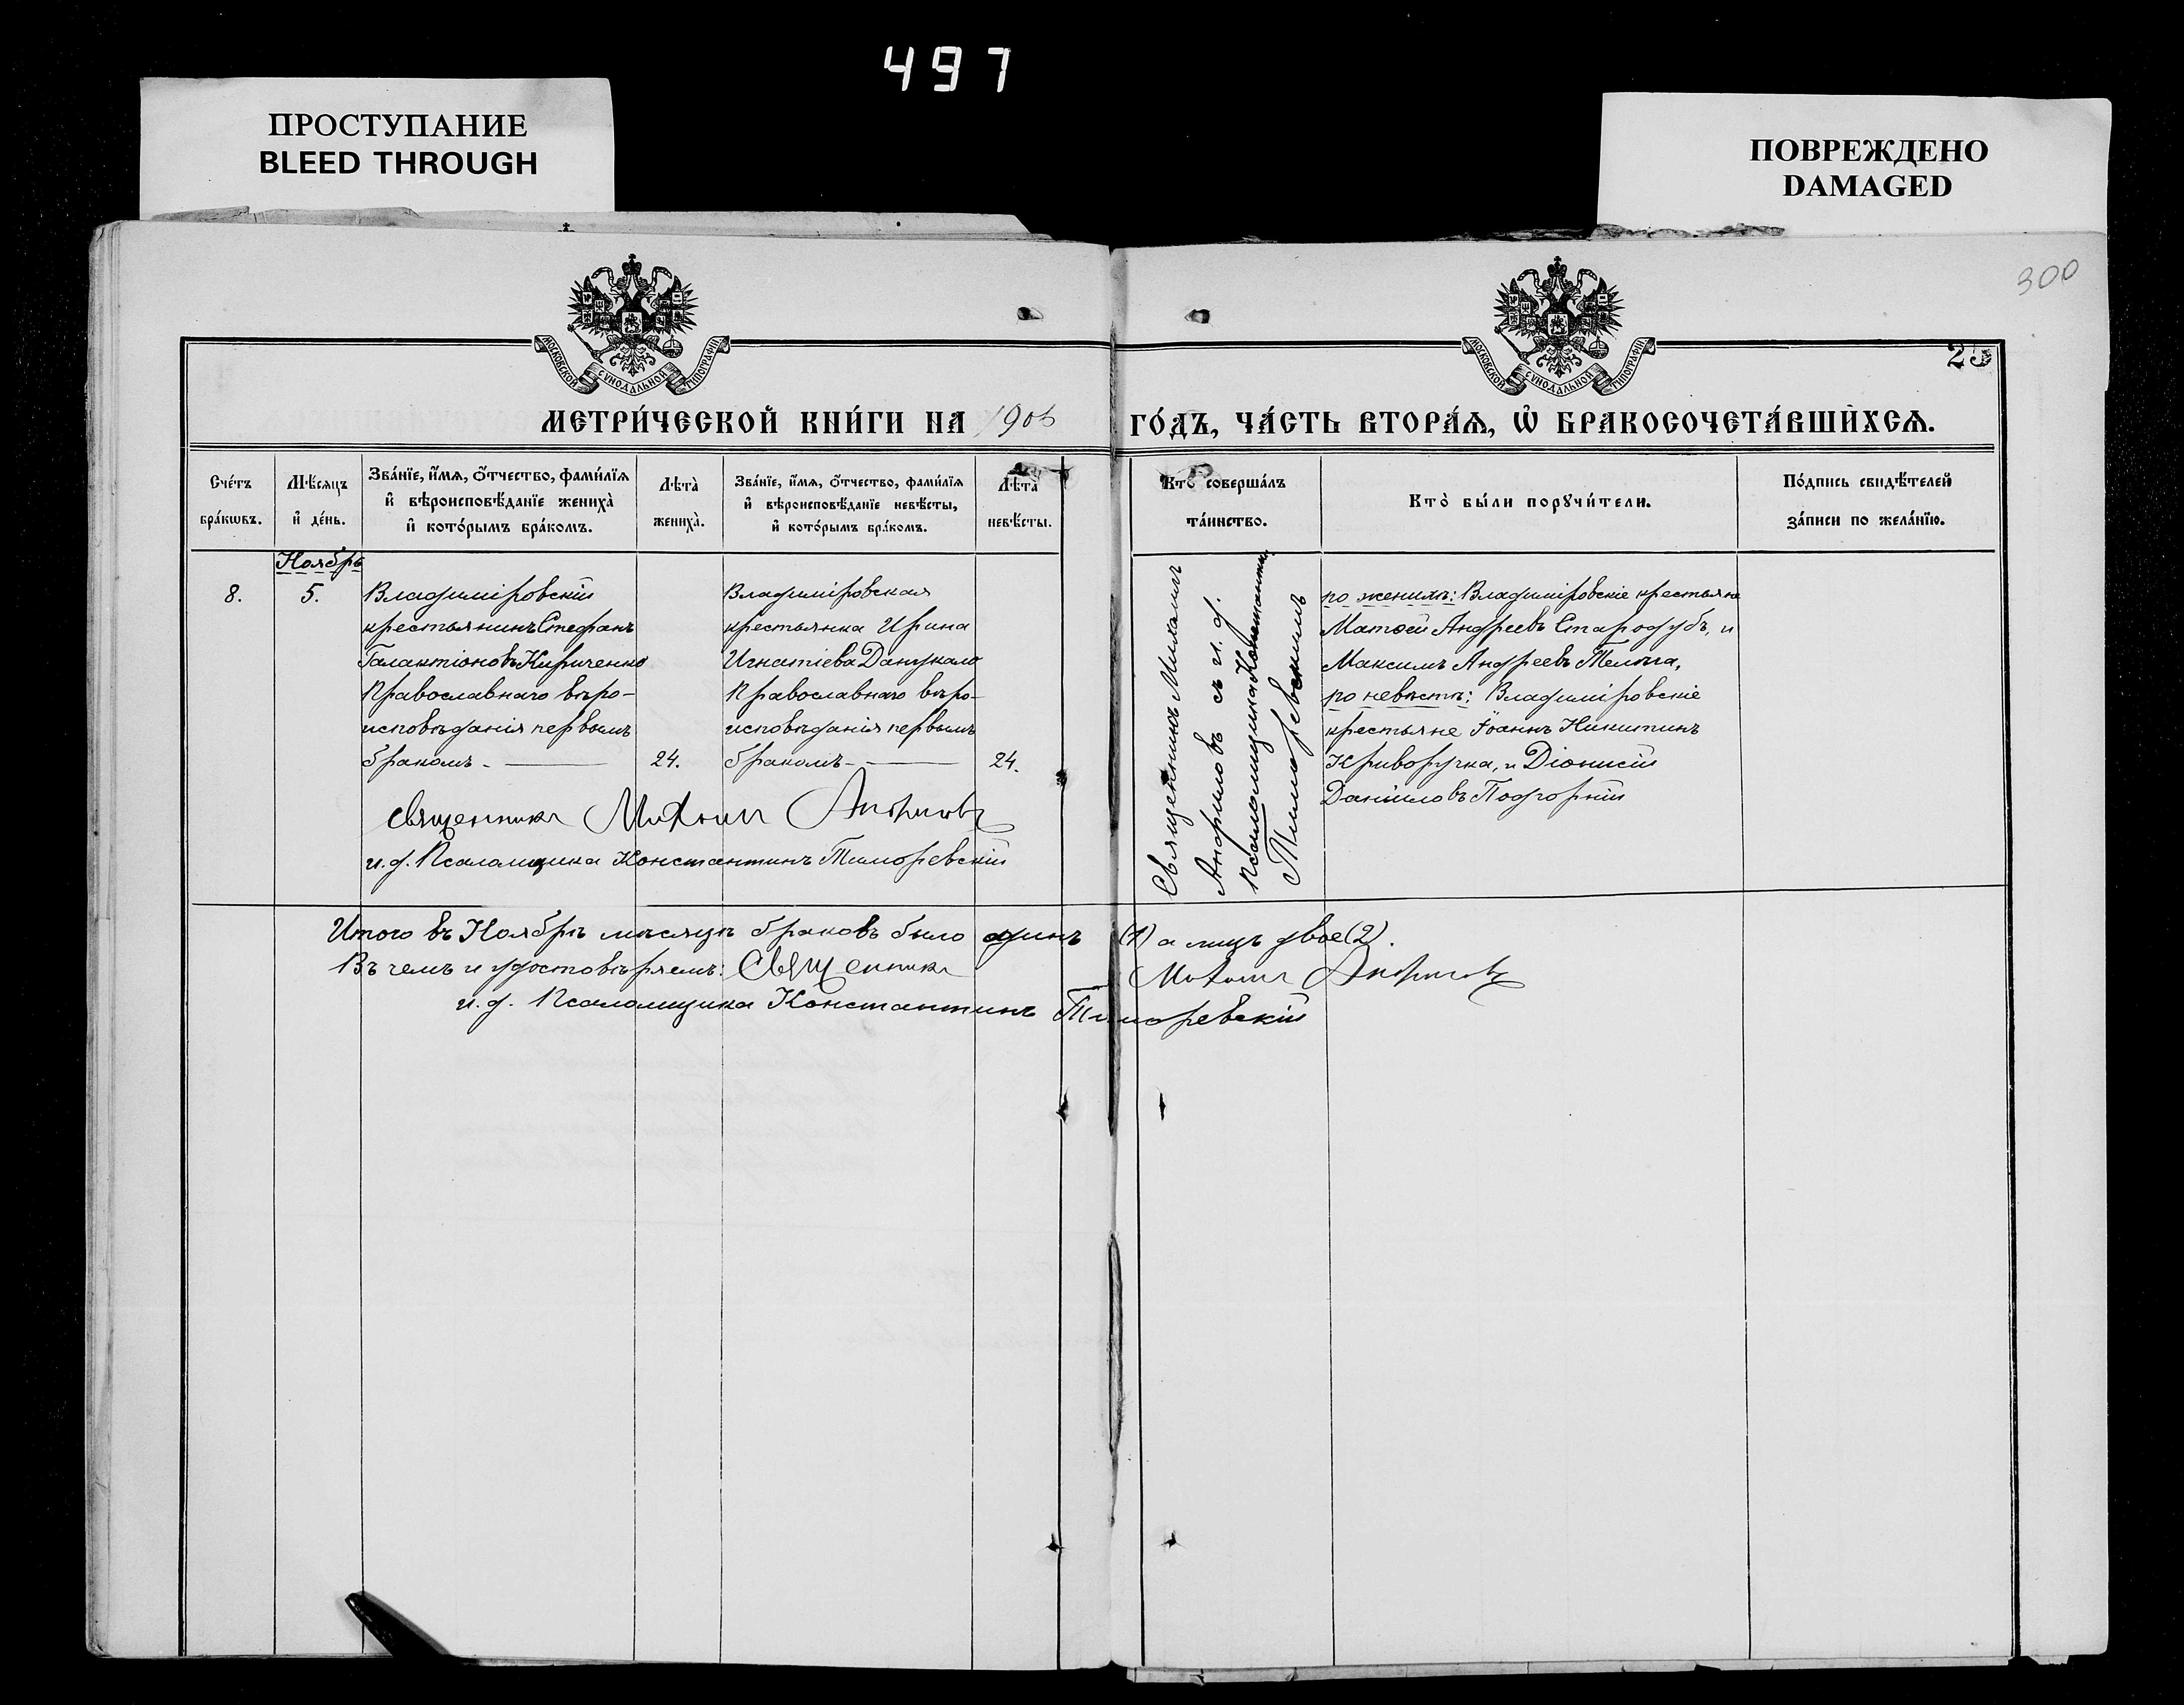 497
ПРОСТУПАНИЕ
BLEED THROUGH
ПОВРЕЖДЕНО
DAMAGED
300
25
МОСКОВСКОЙ СУНОДАЛЬНОЙ ТИПОГРАФІИ
МОСКОВСКОЙ СУНОДАЛЬНОЙ ТИПОГРАФІИ
МЕТРИ́ЧЕСКОЙ КНИ́ГИ НА
ГО́ДЪ, ЧА́СТЬ ВТОРА́Ѧ, Ѡ҆ БРАКОСОЧЕТА́ВШИХСѦ.
Сче́тъ
бра́кѡвъ.
Мѣ́сяцъ
и҆ де́нь.
Зва́нїе, и҆́мѧ, ѻ҆́тчество, фами́лїѧ
и҆ вѣроисповѣ́данїе жениха̀
и҆ кото́рымъ бра́комъ.
Лѣта̀
жениха̀.
Зва́нїе, и҆́мѧ, ѻ҆́тчество, фами́лїѧ
и҆ вѣроисповѣ́данїе невѣ́сты,
и҆ кото́рымъ бра́комъ.
Лѣта̀
невѣ́сты.
Кто̀ соверша́лъ
та́инство.
Кто̀ бы́ли порꙋчи́тели.
По́дпись свидѣ́телей
за́писи по жела́нїю.
Ноябрь
8.
5.
Владимiровскiй
крестьянинъ Стефанъ
Галактiоновъ Кириченко
Православнаго вѣро-
исповѣданiя первымъ
бракомъ -
24.
Владимiровская
крестьянка Ирина
Игнатiева
Православнаго вѣро-
исповѣданiя первымъ
бракомъ -
24.
Священникъ Михаилъ
съ и. д.
псаломщика Константин.
по женихѣ: Владимiровскiе крестьяне
Матѳей Андреевъ Стародубъ, и
Максимъ Андреевъ
по невѣстѣ: Владимiровскiе
крестьяне Iоаннъ Никитинъ
Криворучка, и Дiонисiй
Данiиловъ Подгорнiй
Священникъ Михаилъ
и. д. Псаломщика Константинъ
Итого въ Ноябрѣ мѣсяцѣ браковъ было одинъ (1) а лицъ двое (2).
Въ чемъ и удостовѣряемъ: Священникъ Михаилъ
и. д. Псаломщика Константинъ